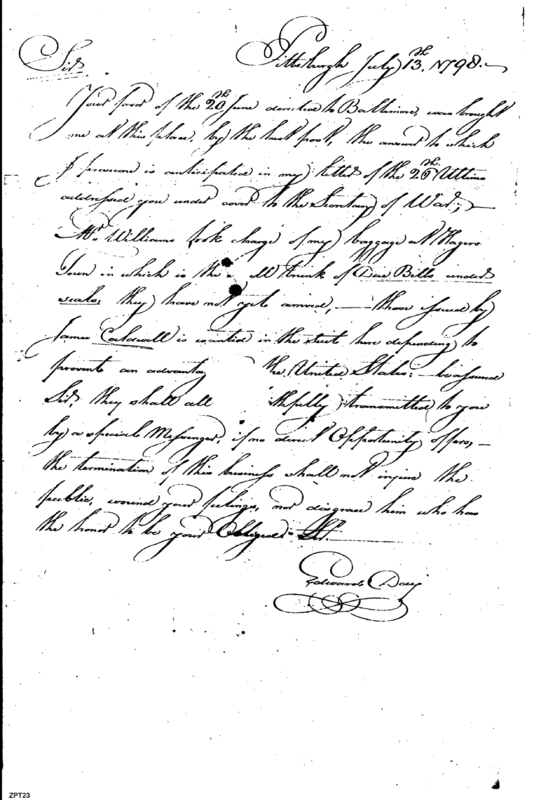 Pittsburgh July 13th 1798.
Sir
Your favor of the 20th June directed to Baltimore, was brought
me at this place, by the last post, the answer to which
I presume is anticipated in my letter of the 26th Ultimo
addressed you under cover to the Secretary of War;
Mr. Williams took charge of my baggage at Hagers
Town in which is the small trunk of Due Bills under
seals, they have not yet arrived, — those issued by
James Caldwell is wanted in the suit here depending to
prevent an advantag the United States: be assured
Sir, they shall all thfully transmitted to you
by a special Messenger, if no direct Opportunity offers, —
the termination of this business shall not injure the
public, wound your feelings, nor disgrace him who has
the honor to be your Obliged St.
Edward Day
ZPT23